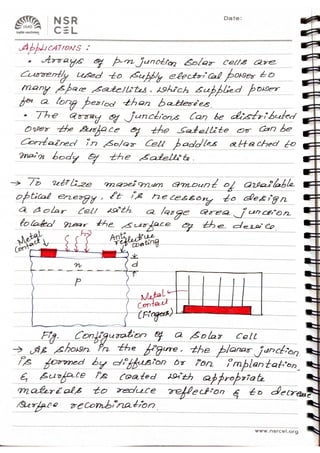 NSR
CEL
Date:
APPLICATIONS :
• Arrays of p-n junction solar cells are
currently used to supply electrical power to
many space satellites. which supplied power
for a long period than batteries.
• The array of junctions can be distributed
over the surface of the satellite or can be
contained in solar cell paddles attached to
main body of the satellite.
→ To utilize maximum amount of available
optical energy, it is necessary to design
a solar cell with a large area junction
located near the surface of the device
Metal
contact
hν
Anti
reflective
coating
n
d
P
Metal
Contact
(Fingers)
Fig. Configuration of a solar cell
→ As shown in the figure. the planar junction
is formed by diffusion or ion implantation.
& surface is coated with appropriate
materials to reduce reflection & to decrease
surface recombination.
www.nsrcel.org